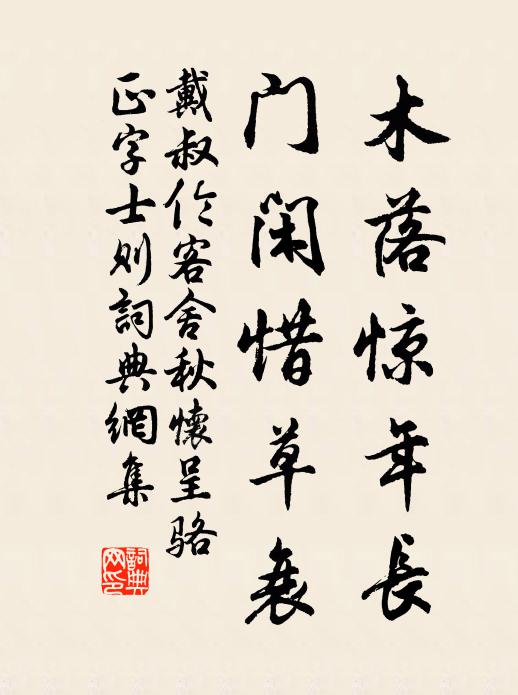 木落惊年长
门闲惜草衰
戴叔伦客舍秋懷呈骆
正字士则詞典網集
詞典网印